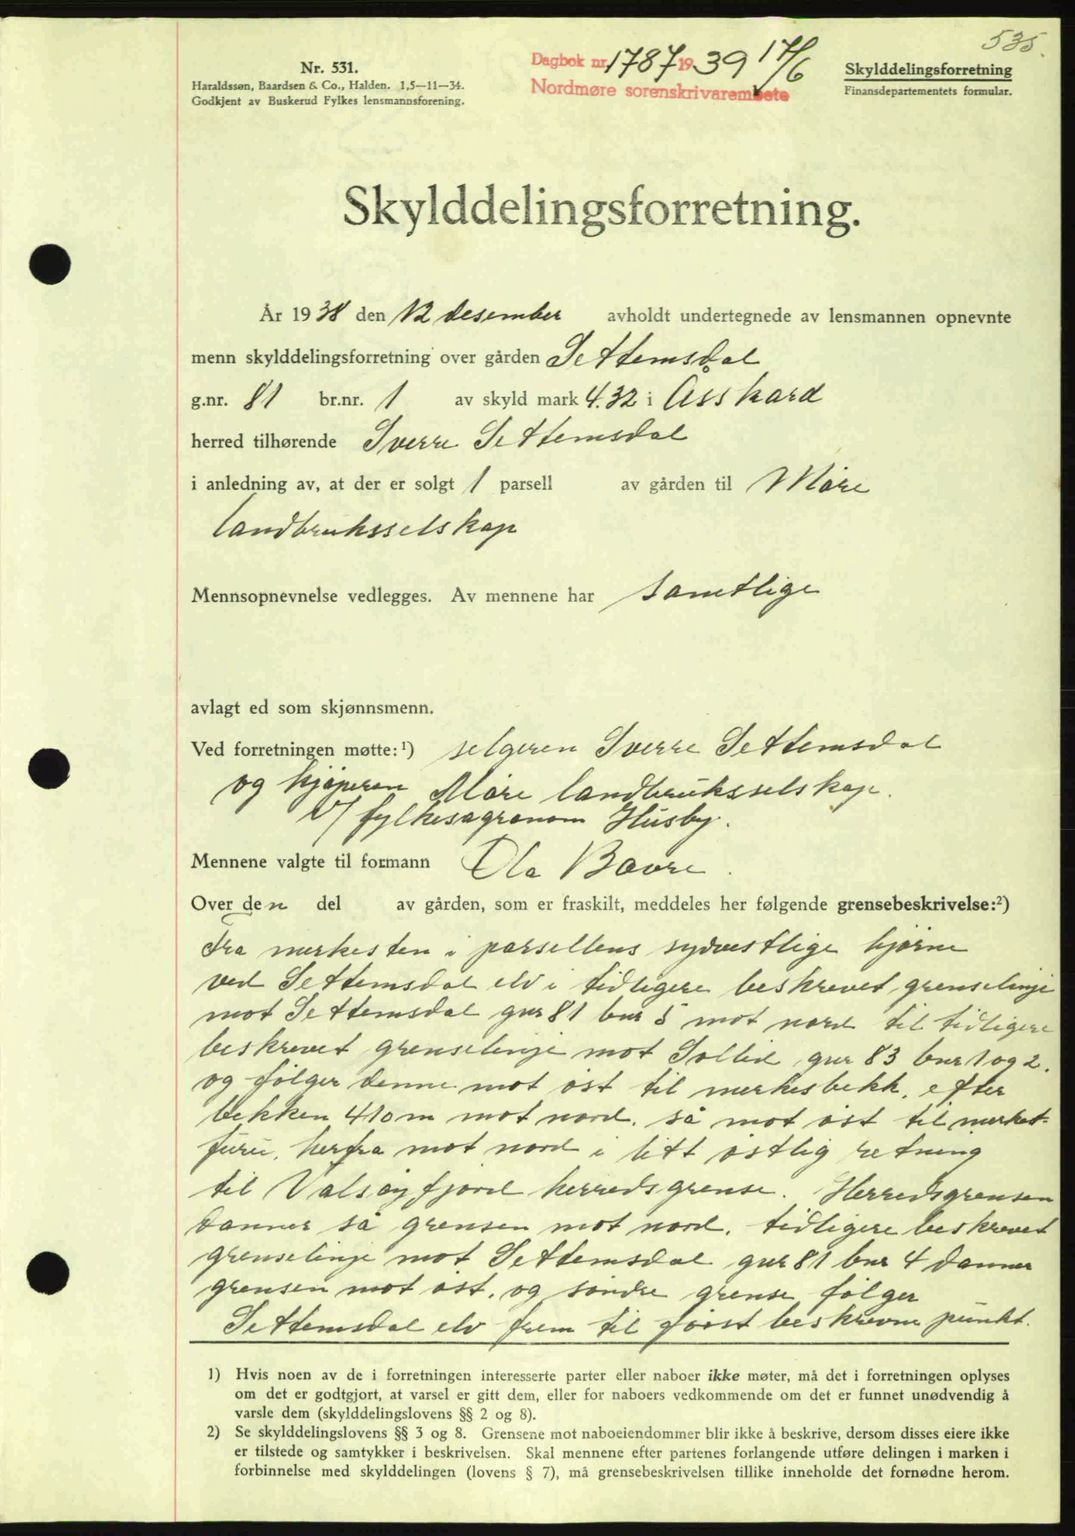 535.
Nr. 531.
Haraldssøn, Baardsen & Co., Halden. 1,5—11—34.
Godkjent av Buskerud Fylkes lensmannsforening.
Dagbok nr. 1787 1939 17/6
Nordmøre sorenskrivarembete
Skylddelingsforretning
Finansdepartementets formular.
Skylddelingsforretning.
År 1938 den 12 desember avholdt undertegnede av lensmannen opnevnte
menn skylddelingsforretning over gården Settemsdal
g.nr. 81 br.nr. 1 av skyld mark 4.32 i Åsskard
herred tilhørende Sverre Settemsdal
i anledning av, at der er solgt 1 parsell av gården til Møre
landbruksselskap
Mennsopnevnelse vedlegges. Av mennene har samtlige
avlagt ed som skjønnsmenn.
Ved forretningen møtte: 1) selgeren Sverre Settemsdal
og kjøperen Møre landbruksselskap.
v/ fylkesagronom Husby.
Mennene valgte til formann Ola Bævre.
Over den del av gården, som er fraskilt, meddeles her følgende grensebeskrivelse: 2)
Fra merkesten i parsellens sydvestlige hjørne
ved Settemsdal elv i tidligere beskrevet grenselinje
mot Settemsdal gnr 81 bnr 5 mot nord til tidligere
beskrevet grenselinje mot Sollid gnr 83 bnr 1 og 2.
og følger denne mot øst til merkesbekk, efter
bekken 410 m mot nord, så mot øst til merket-
furu, herfra mot nord i litt østlig retning
til Valsøyfjord herredsgrense. Herredsgrensen
danner så grensen mot nord, tidligere beskrevet
grenselinje mot Settemsdal gnr 81 bnr 4 danner
grensen mot øst, og søndre grense følger
Settemsdal elv frem til først beskrevne punkt.
1) Hvis noen av de i forretningen interesserte parter eller naboer ikke møter, må det i forretningen oplyses
om det er godtgjort, at varsel er gitt dem, eller for naboers vedkommende om det er funnet unødvendig å
varsle dem (skylddelingslovens §§ 2 og 8).
2) Se skylddelingslovens §§ 3 og 8. Grensene mot naboeiendommer blir ikke å beskrive, dersom disses eiere ikke
er tilstede og samtykker i beskrivelsen. Skal mennene efter partenes forlangende utføre delingen i marken i
forbinnelse med skylddelingen (lovens § 7), må grensebeskrivelsen tillike inneholde det fornødne herom.